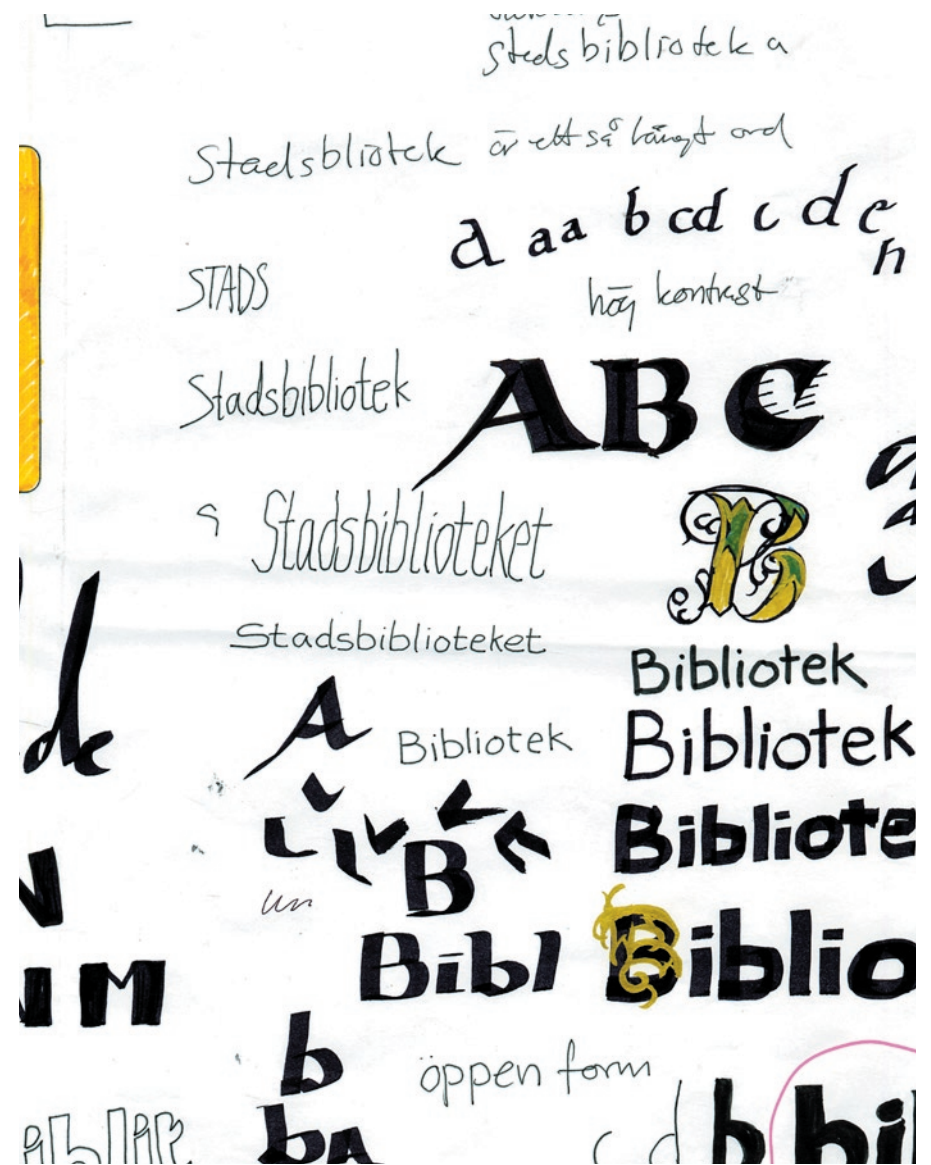 stadsbibliotek a
Stadsbliotek är ett så långt ord
a a a b cd c d e
h
STADS
hög kontrast
Stadsbibliotek
ABC
Stadsbiblioteket
B
Stadsbiblioteket
Bibliotek
de
A
Bibliotek
Bibliotek
Bibliote
B
un
Bibl
Biblio
N M
b
öppen form
c d b bi
bA